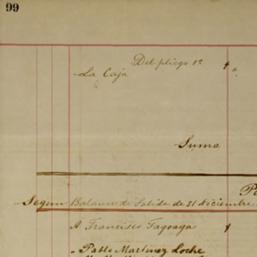 99
Del pliego 1º $
La Caja
Suma
Segun Balance de Salida de 31 Diciembre
A Francisco Fagoaga $
" Pablo Martinez